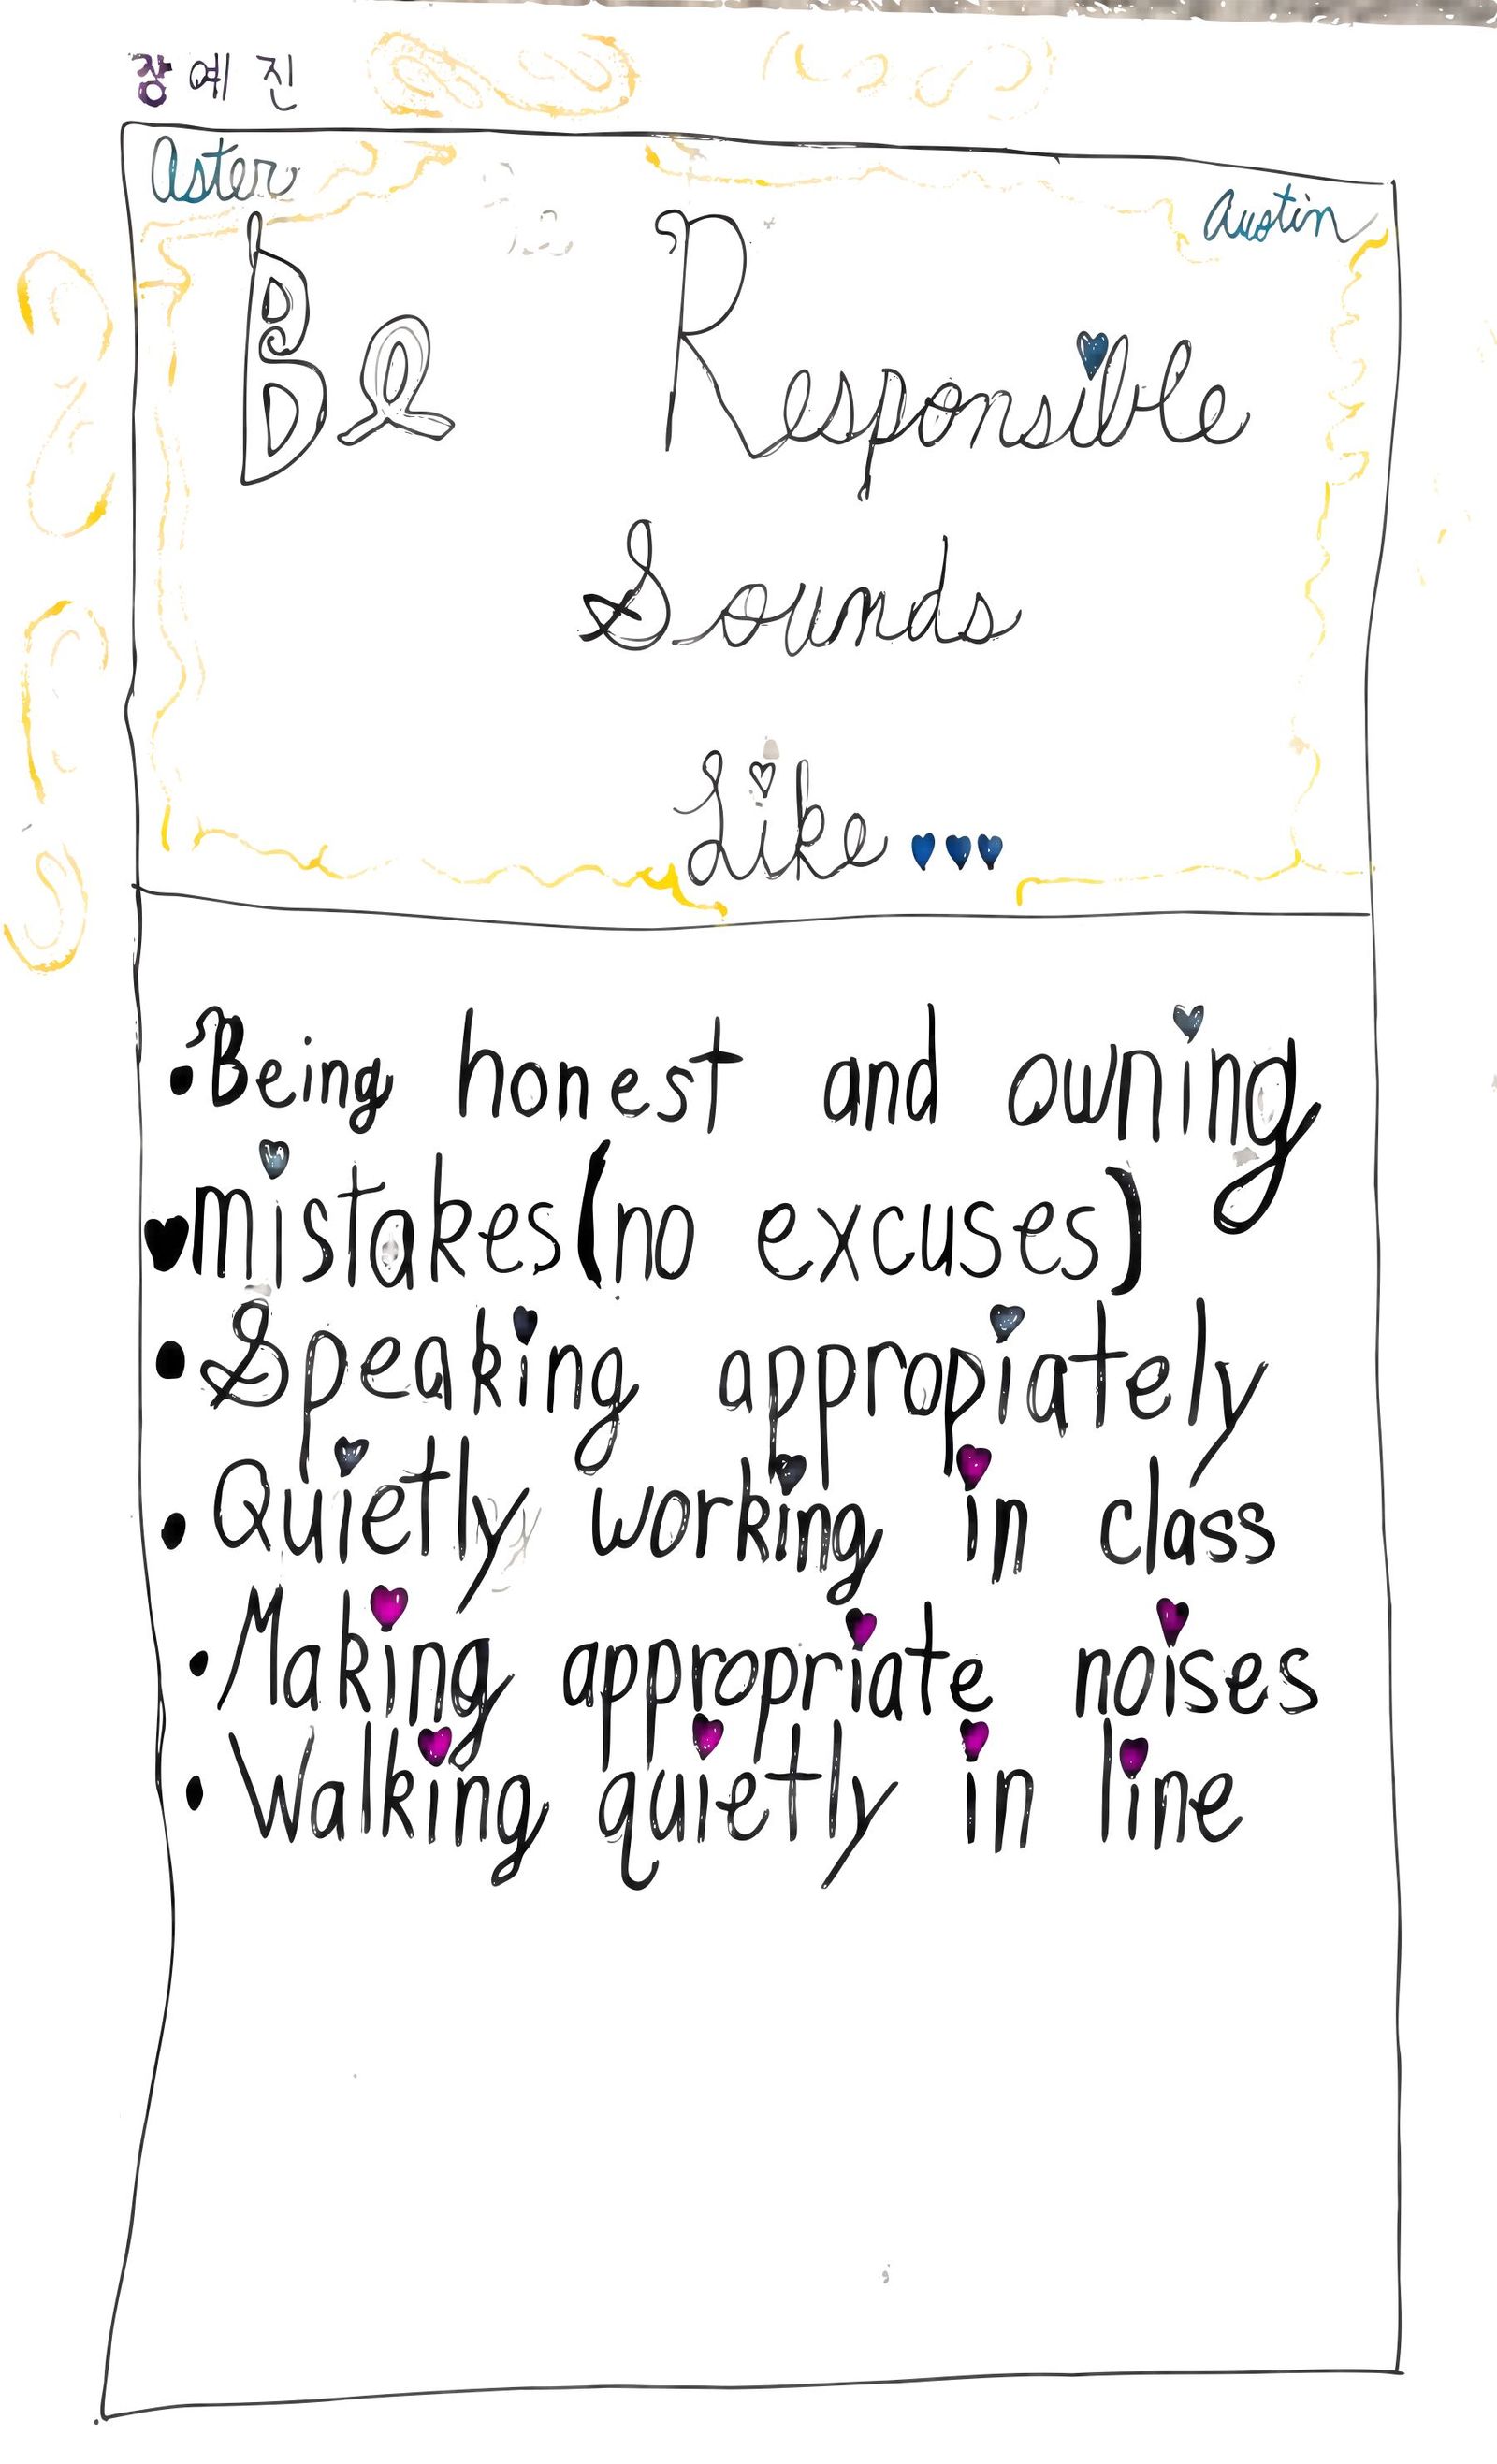 장예진
Aster
Austin
Be Responsible
Sounds
Like...
• Being honest and owning
♥ mistakes (no excuses)
• Speaking appropiately
• Quietly working in class
• Making appropriate noises
• Walking quietly in line